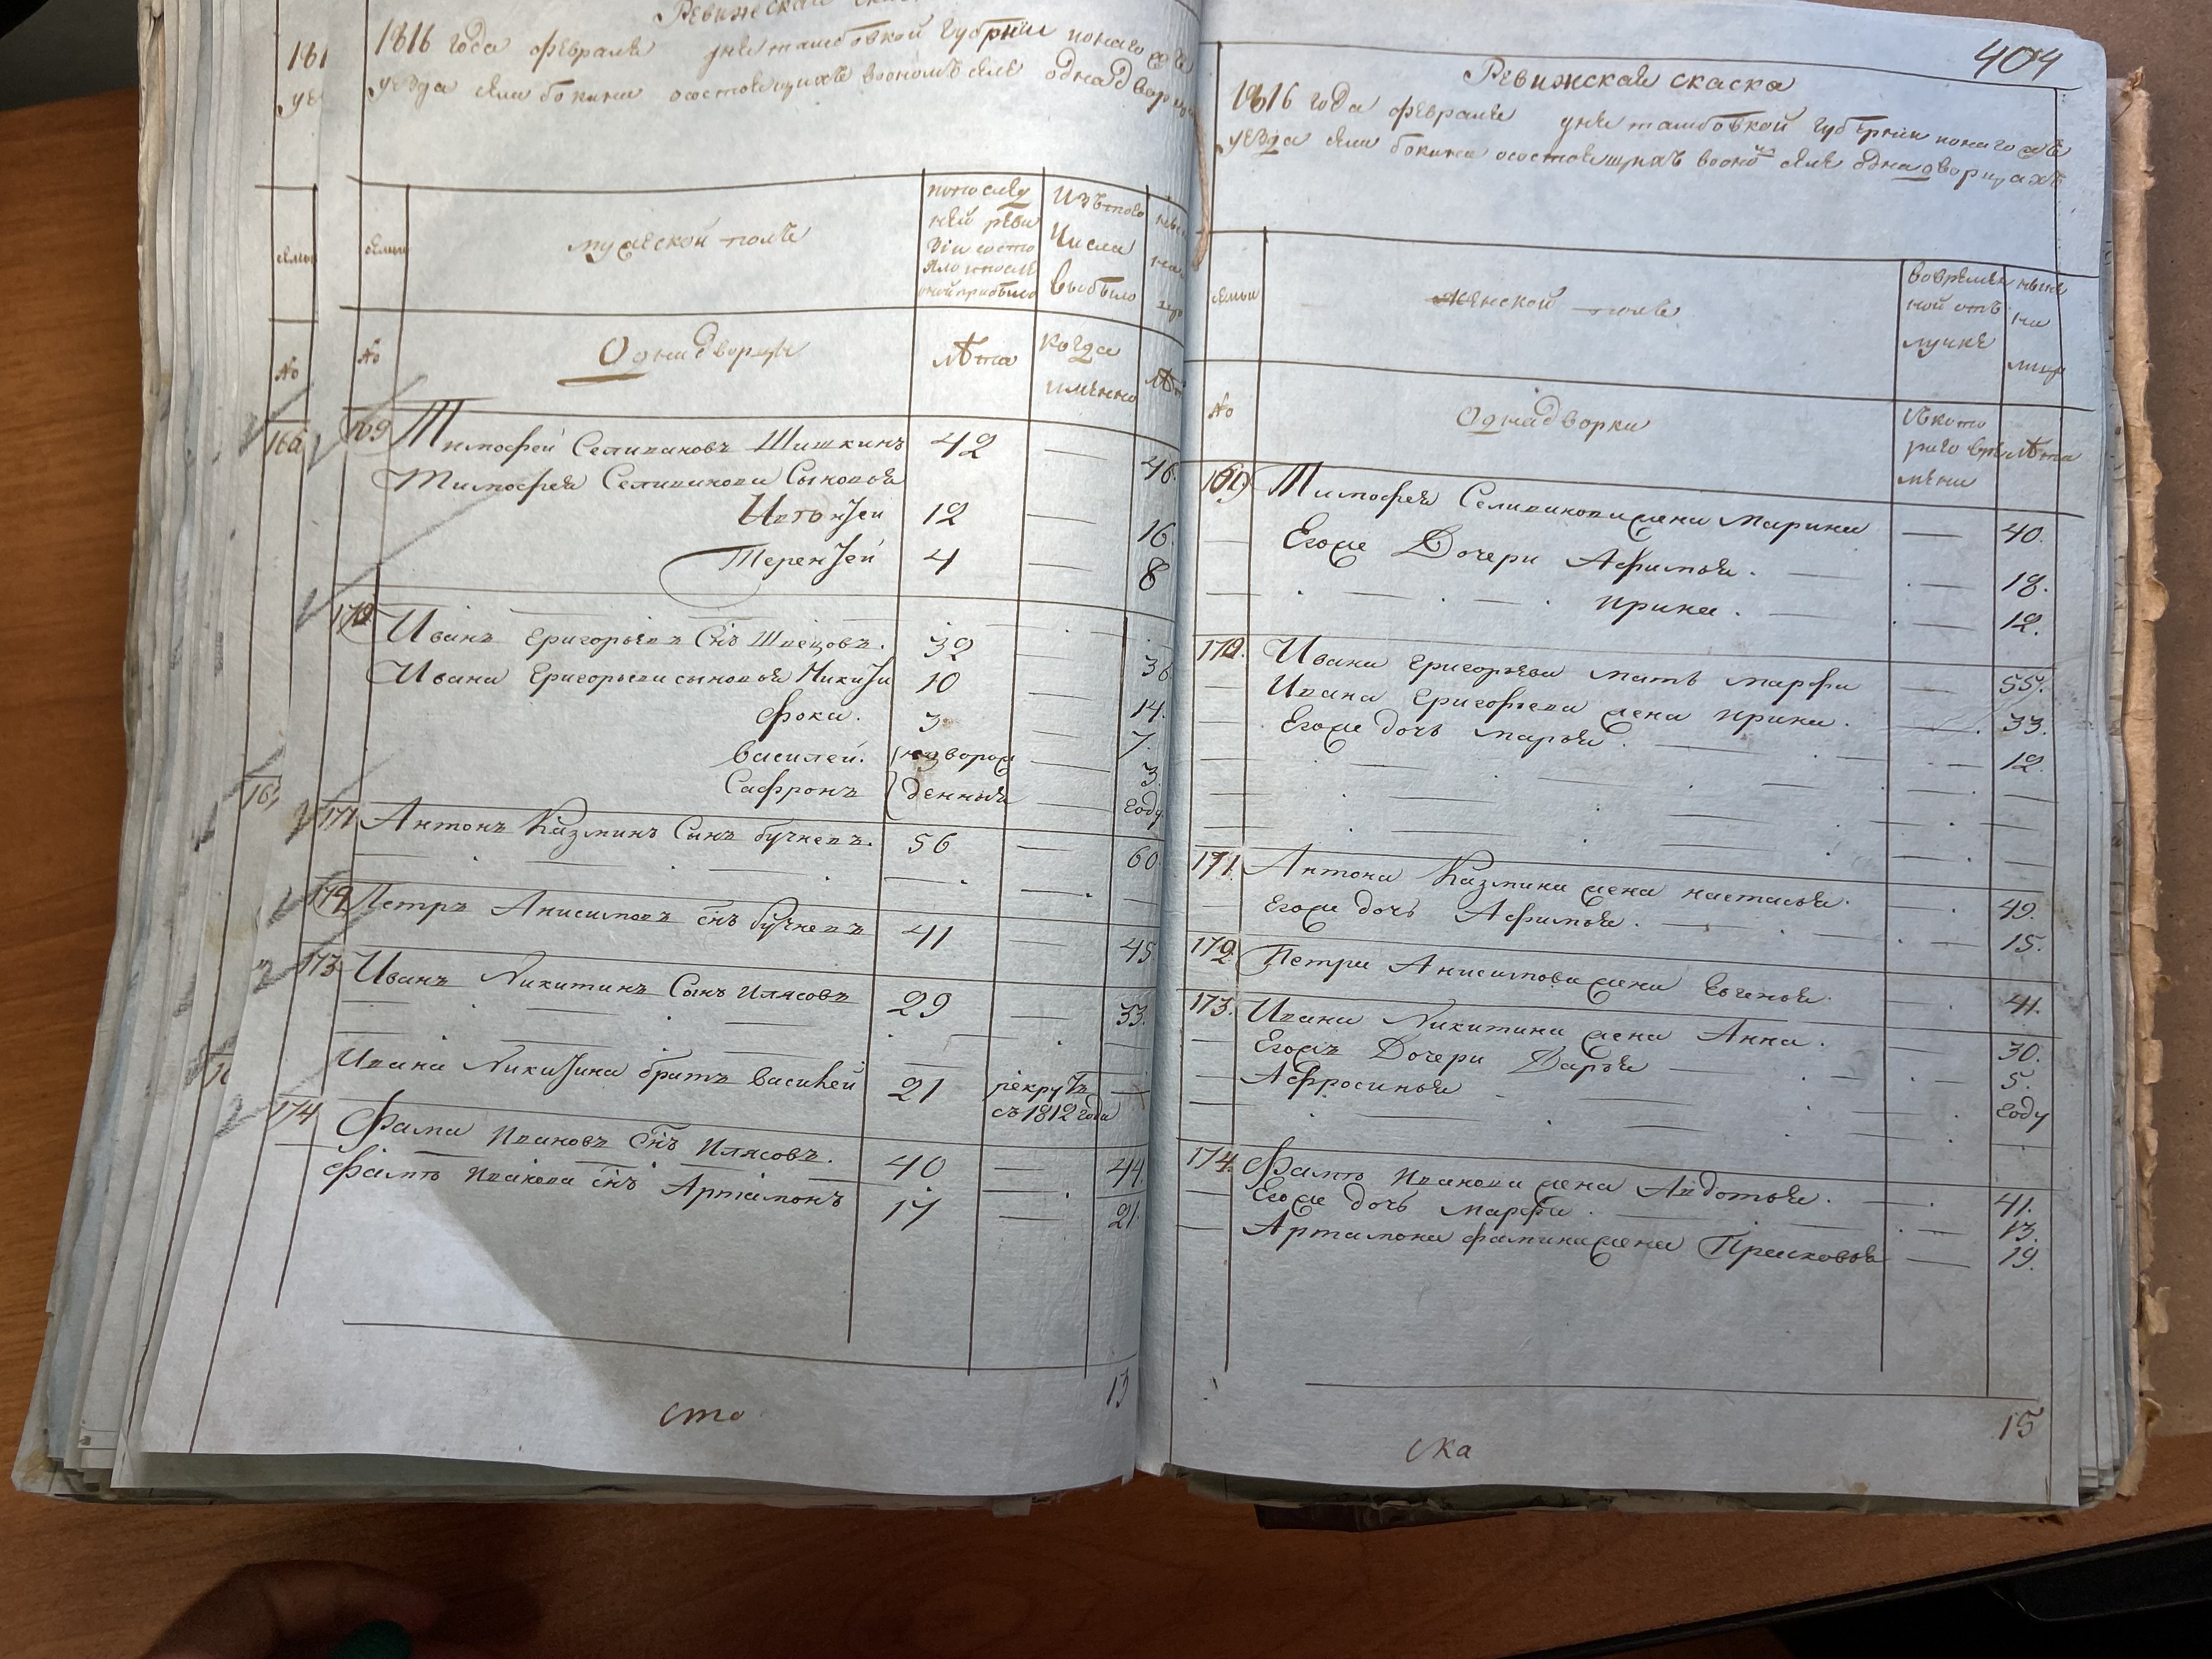 Ревижская скаска
1816 года февраля дня танбовской губернии
уезда села бокина осостоящихъ воономъ селе однадворцахъ
мужеской полъ
попослед
ней реви
зіи состо
яло ипосле
оной прибыло
Изътого
числа
выбыло
семьи
№
Однадворцы
лѣта
когда
имянно
169 Тимофей Селивановъ Шишкинъ 42 — 46.
Тимофея Селиванова Сыновья
Игтонтеи 12 — 16
Терентей 4 — 8
170 Иванъ Григорьевъ Снъ Швецовъ. 32 — 36
Ивана Григорьева сыновья Никита 10 — 14.
Фока. 3 — 7.
василей. новорож — 3.
Сафронъ денныя — году
171 Антонъ Казминъ Сынъ бучневъ. 56 — 60
172 Петръ Анисимовъ снъ бучневъ 41 — 45
173 Иванъ Никитинъ Сынъ Илясовъ 29 — 33.
Ивана Никитина братъ василей 21 рекрутъ —
съ 1812 года
174 Фама Ивановъ снъ Илясовъ. 40 — 44.
Фамы Иванова снъ Артамонъ 17 — 21.
13
сто
404
Ревижская скаска
1816 года февраля дня танбовской губернии
уезда села бокина осостоящихъ воономъ селе однадворцахъ
семьи
женской полъ
вовремян
ной отъ
лучке
ныне
на
лицо
№
Однадворки
Ското
раго вре
мени
лѣта
169 Тимофея Селиванова жена Марина — 40.
Егоже Дочери Афимья. — 18.
Ирина. — 12.
170. Ивана григорьева мать марфа — 55.
Ивана Григорьева жена Ирина. — 33.
Егоже дочь марья. — 12.
171. Антона Казмина жена настасья. — 49.
Егоже дочь Афимья. — 15.
172. Петра Анисимова жена Евгенья. — 41.
173. Ивана Никитина жена Анна. — 30.
Егожъ Дочери Дарья — 5.
Афросинья — году
174. Фамы Иванова жена Авдотья. — 41.
Егоже дочь марфа. — 13.
Артамона фамина жена Прасковья — 19.
15
ска